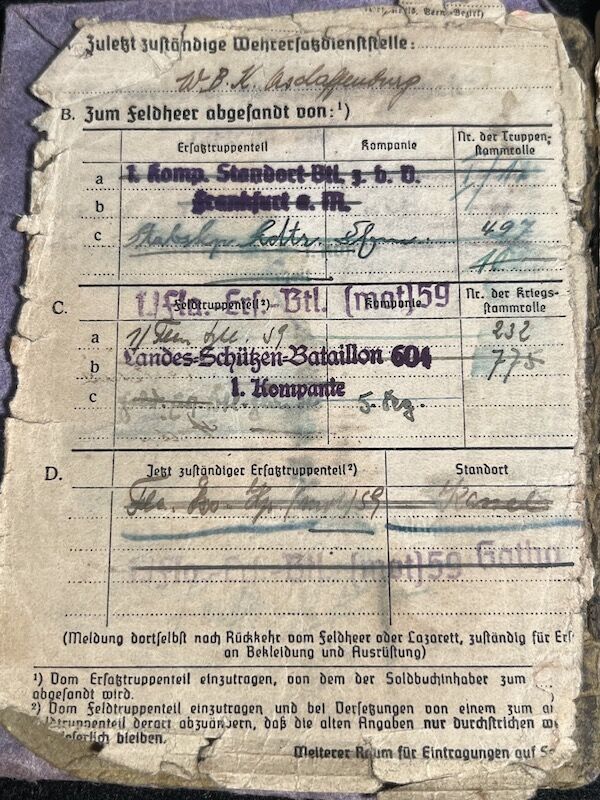 Zuletzt zuständige Wehrersatzdienststelle:
W.B.K. Aschaffenburg
B. Zum Feldheer abgesandt von:¹)
Ersatztruppenteil Kompanie Nr. der Truppen-
stammrolle
a 1. Komp. Standort-Btl. z. b. V.
b Frankfurt a. M.
c 497
1)Fla. Ers.-Btl. (mot)59
C. Feldtruppenteil²) Kompanie Nr. der Kriegs-
stammrolle
a 59 232
b Landes-Schützen-Bataillon 604 775
c 1. Kompanie
D. Jetzt zuständiger Ersatztruppenteil²) Standort
Fla. 59
Fla-Ers.-Btl. (mot)59 Gotha
(Meldung dortselbst nach Rückkehr vom Feldheer oder Lazarett, zuständig für Ers
an Bekleidung und Ausrüstung)
¹) Vom Ersatztruppenteil einzutragen, von dem der Soldbuchinhaber zum
abgesandt wird.
²) Vom Feldtruppenteil einzutragen und bei Versetzungen von einem zum a
ldtruppenteil derart abzuändern, daß die alten Angaben nur durchstrichen w
leserlich bleiben.
Weiterer Raum für Eintragungen auf Se